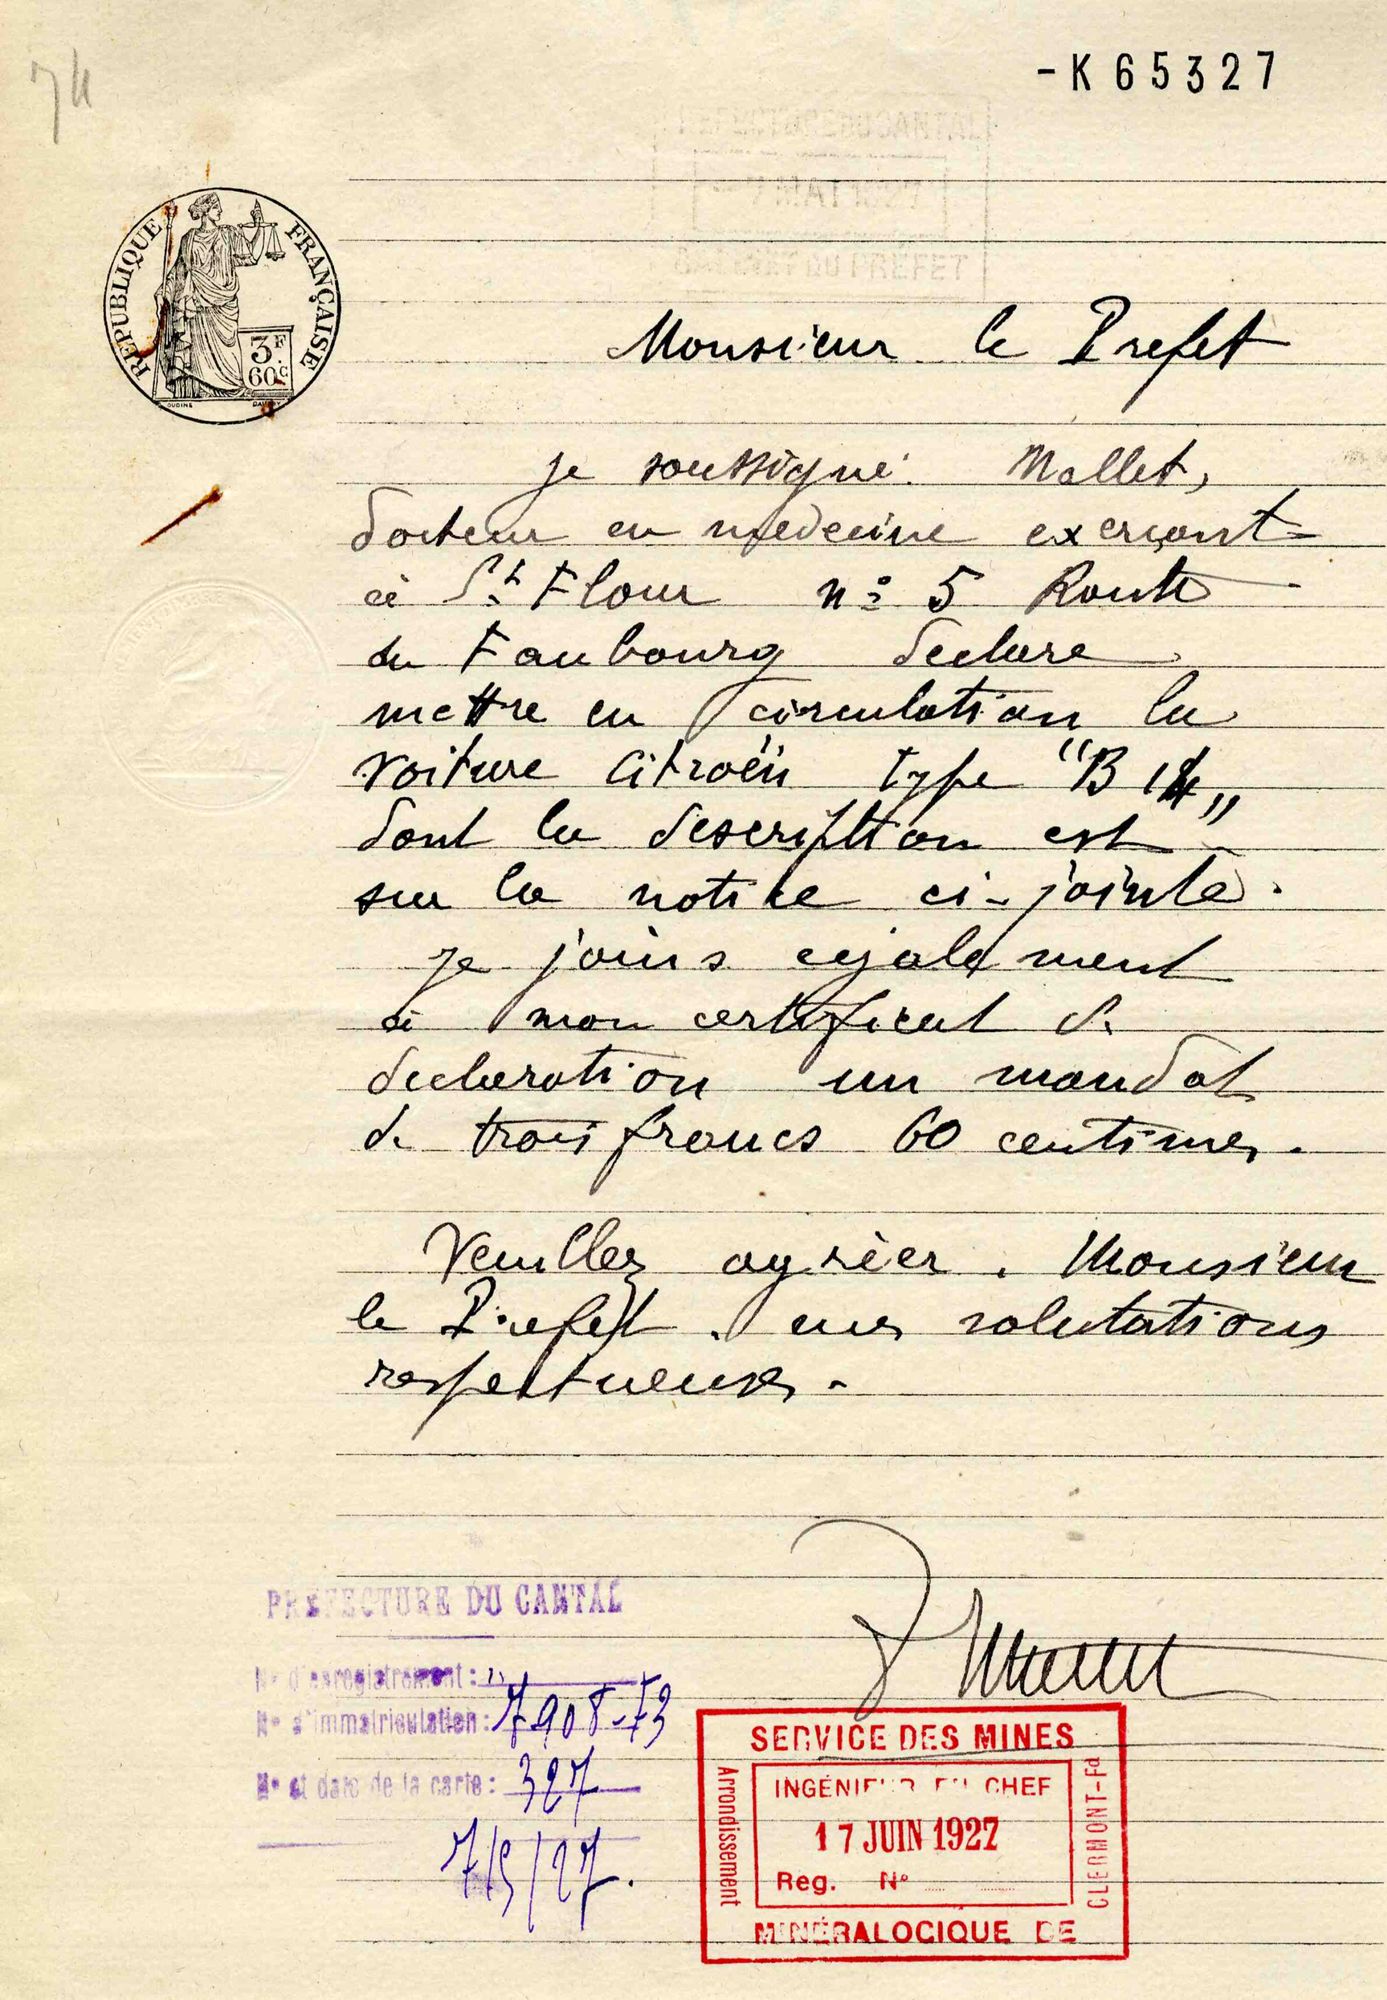 -K65327
PREFECTURE DU CANTAL
7 MAI 1927
CABINET DU PREFET
REPUBLIQUE FRANÇAISE
3F
60c
OUDINE
Monsieur le Prefet
je soussigné Mallet,
docteur en medecine exerçant
à St Flour n° 5 Route
du Faubourg declare
mettre en circulation la
voiture Citroën type "B 14"
dont la description est
sur la notice ci-jointe.
je joins egalement
à mon certificat de
declaration un mandat
de trois francs 60 centimes.
Veuillez agréer, Monsieur
le Prefet, mes salutations
respectueuses.
Mallet
PREFECTURE DU CANTAL
N° d'enregistrement :
N° d'immatriculation : 7908-F3
N° et date de la carte : 327
7/5/27.
SERVICE DES MINES
Arrondissement
INGÉNIEUR EN CHEF
17 JUIN 1927
Reg. N°
CLERMONT-Fd
MINÉRALOGIQUE DE